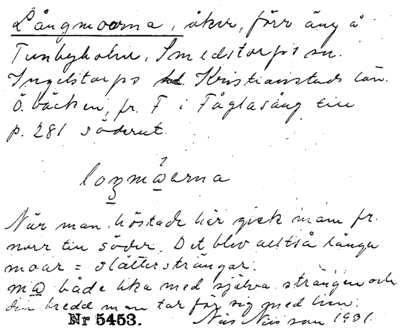 Långmoarna, åker, förr äng å
Tunbyholm, Smedstorps sn.
Ingelstorps hd Kristianstads län.
Ö. bäcken, fr. F i Fåglasång till
p. 281 söderut.
loŋmɑerna
När man höstade här gick man fr.
norr till söder. Det blev alltså långa
moar = slåttersträngar.
både lika med själva strängen och
den bredd man tar för sig med lien.
Nr 5453. Nils Nilsson 1931.